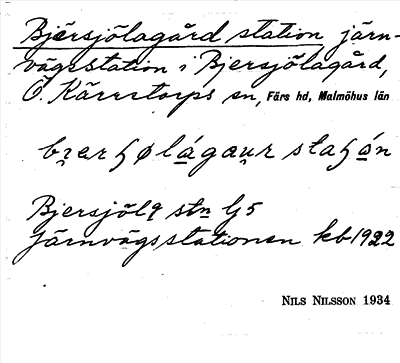 Bjersjölagård station järn-
vägsstation i Bjersjölagård,
Ö. Kärrstorps sn, Färs hd, Malmöhus län
bɪ̯erɧølágau̯r staɧán
Bjersjöl9 stn G5
Järnvägsstationen kb 1922
NILS NILSSON 1934